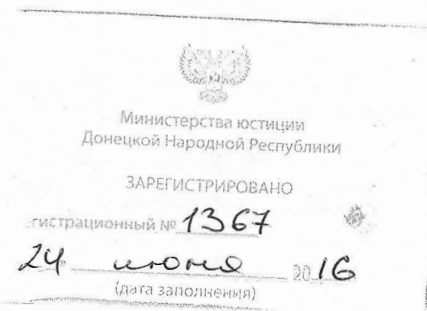 Министерства юстиции
Донецкой Народной Республики
ЗАРЕГИСТРИРОВАНО
гистрационный № 1367
24 июня 2016
(дата заполнения)